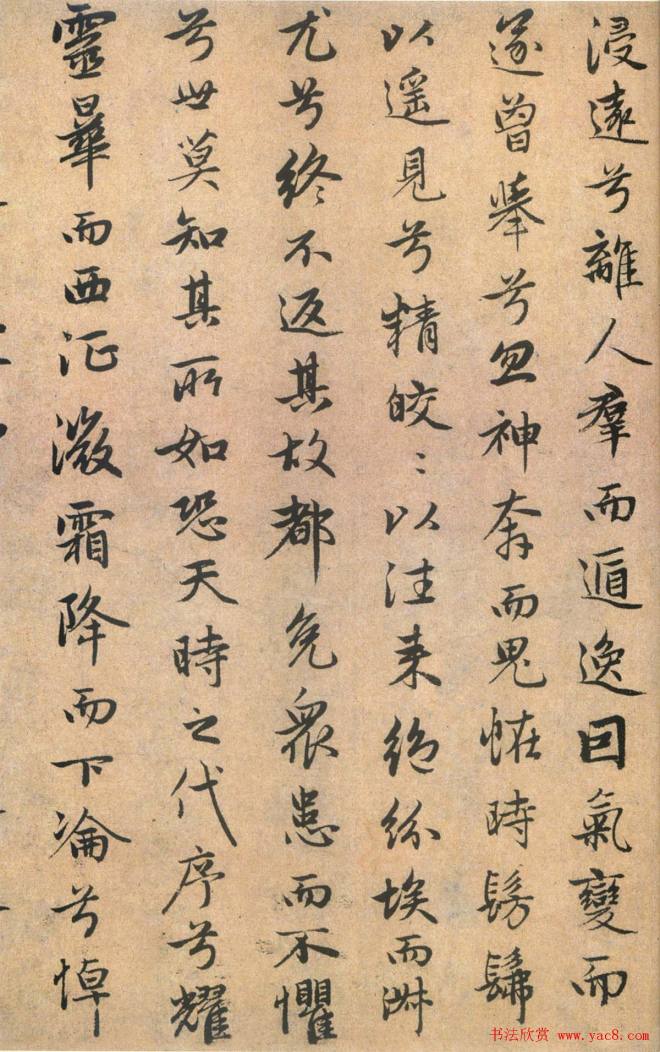 浸遠兮離人羣而遁逸囙氣變而
遂曾舉兮忽神奔而鬼恠時髣髴
以遥見兮精皎〻以往来絶紛埃而淑
尤兮終不返其故都免衆患而不懼
兮世莫知其所如恐天時之代序兮耀
靈曅而西征微霜降而下淪兮悼
书法欣赏 www.yac8.com